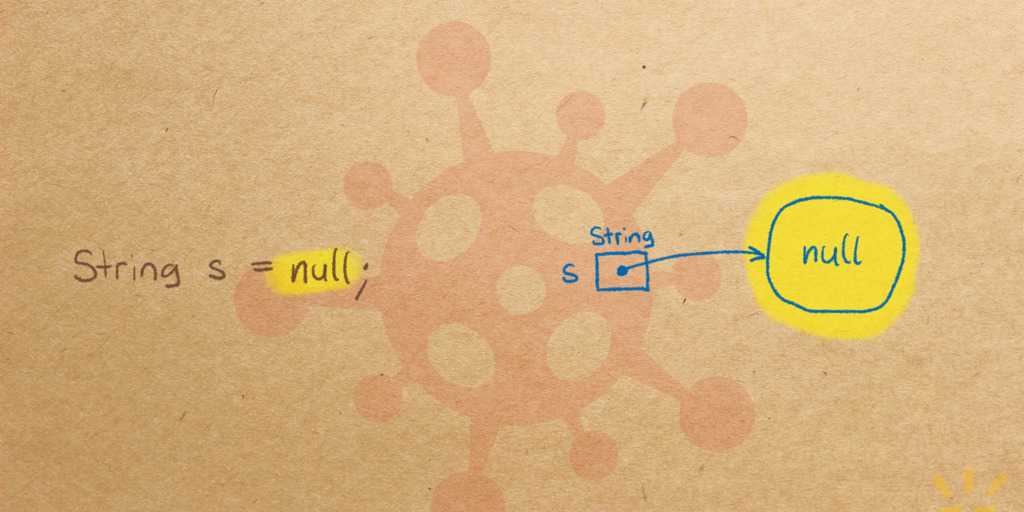 String s = null;
String
s
null